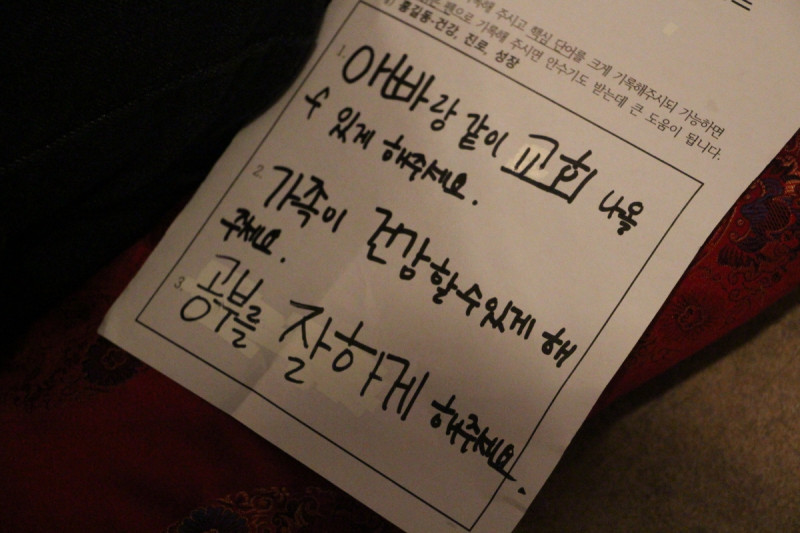 기록해 주시고 핵심 단어를 크게 기록해주시되 가능하면
펜으로 기록해 주시면 안수기도 받는데 큰 도움이 됩니다.
홍길동-건강, 진로, 성장
1. 아빠랑 같이 교회 나올
수 있게 해주세요.
2. 가족이 건강할수있게 해
주세요.
3. 공부를 잘하게 해주세요.